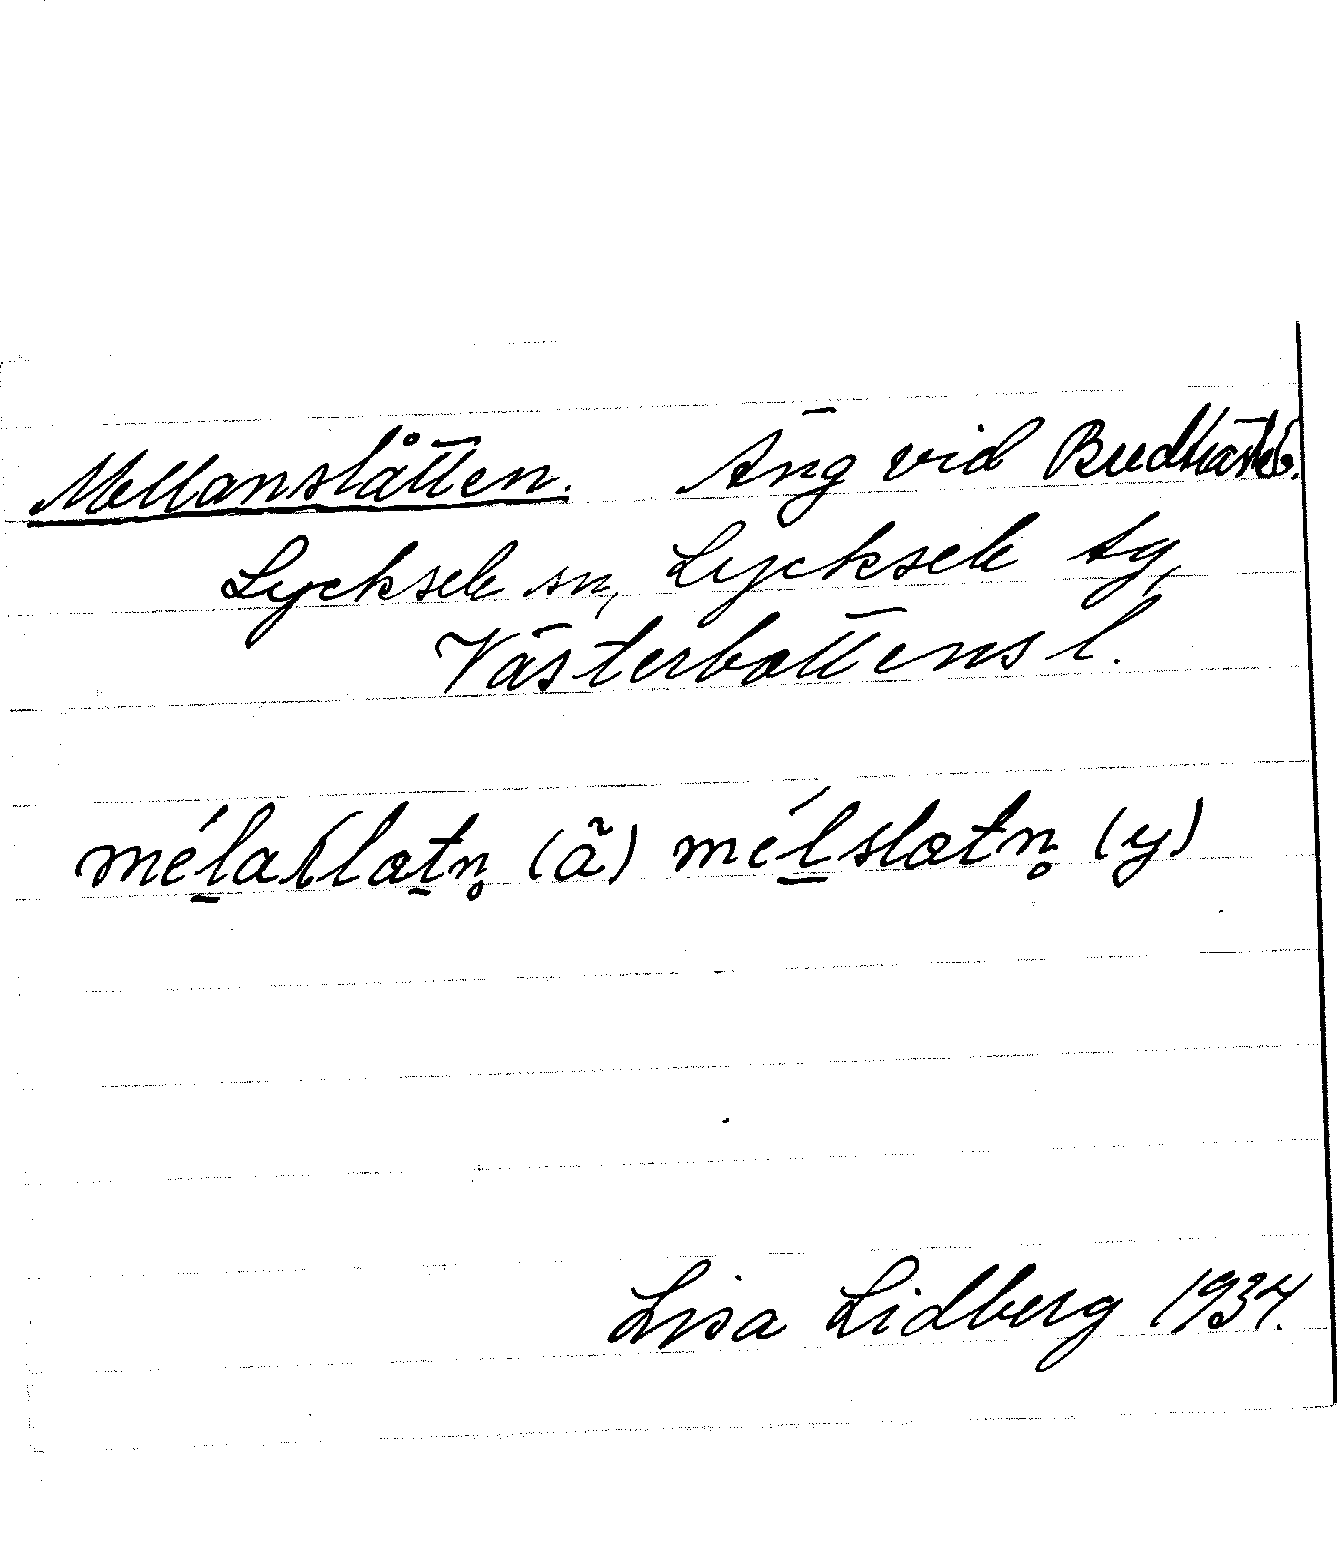 Mellanslåtten. Äng vid Budträsk
Lycksele sn, Lycksele tg,
Västerbottens l.
mélaslatn̥ (ã) mélslatn̥ (y)
Lisa Lidberg 1934.